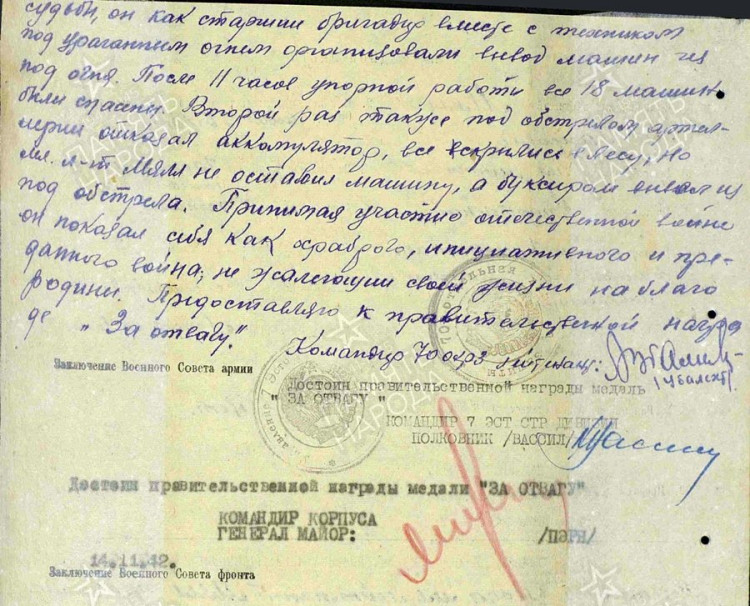 судьбы, он как старший бригадир вместе с техником
под ураганным огнем организовали вывод машин из
под огня. После 11 часов упорной работы все 18 машин
были спасены. Второй раз также под обстрелом артил-
лерии отказал аккомулятор, все вскрылись в лесу, но
мл. л-т Мялл не оставил машину, а буксиром вывел из
под обстрела. Принимая участие отечественной войне
он показал себя как храброго, инициативного и пре-
данного война, не жалеющий своей жизни на благо
родины. Предоставляю к правительственной награ
де "За отвагу".
Командир 70
Заключение Военного Совета армии
Достоин правительственной награды медаль
"ЗА ОТВАГУ"
КОМАНДИР 7 ЭСТ СТР ДИВИЗИИ
ПОЛКОВНИК /ВАССИЛ/
Достоин правительственной награды медали "ЗА ОТВАГУ"
КОМАНДИР КОРПУСА
ГЕНЕРАЛ МАЙОР: /ПЭРН/
14.11.42.
Заключение Военного Совета фронта
ПАМЯТЬ НАРОДА